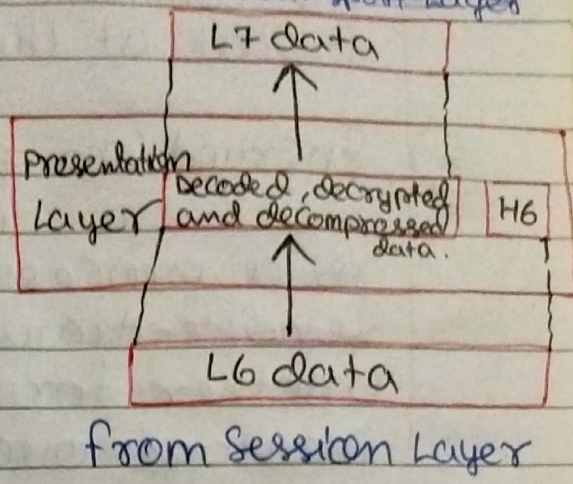 L7 data
Presentation
Layer
Decoded, decrypted
and decompressed
data.
H6
L6 data
from Session Layer